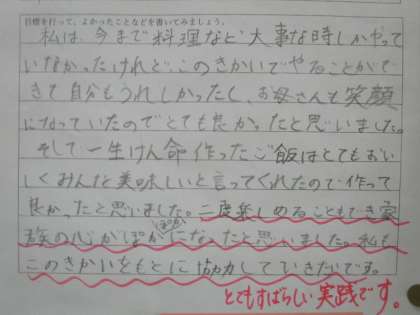 目標を行って、よかったことなどを書いてみましょう。
私は、今まで料理など大事な時しかやって
いなかったけれど、このきかいでやることがで
きて自分もうれしかったし、お母さんも笑顔
になっていたのでとても良かったと思いました。
そして一生けん命作ったご飯はとてもおい
しくみんな美味しいと言ってくれたので作って
良かったと思いました。二度楽しめることもでき家
族の心がぽかぽかになったと思いました。私も
このきかいをもとに協力していきたいです。
とてもすばらしい実践です。